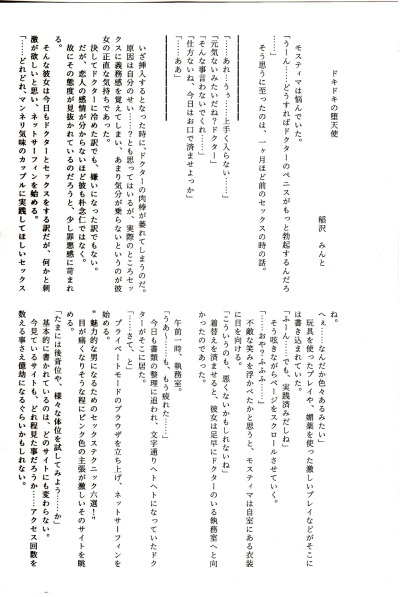 ドキドキの堕天使
稲沢　みんと
モスティマは悩んでいた。
「うーん……どうすればドクターのペニスがもっと勃起するんだろ
……」
そう思うに至ったのは、一ヶ月ほど前のセックスの時の話。
「……あれ…うぅ……上手く入らない……」
「元気ないみたいだね？ドクター」
「そんな事言わないでくれ……」
「仕方ないね、今日はお口で済ませよっか」
「……ああ」
いざ挿入するとなった時に、ドクターの肉棒が萎れてしまうのだ。
原因は自分のせい……？とも思ってはいるが、実際のところセッ
クスに義務感を覚えてしまい、あまり気分が乗らないというのが彼
女の正直な気持ちであった。
決してドクターに冷めた訳でも、嫌いになった訳でもない。
だが、恋人の感情が分からないほど彼も朴念仁ではなく。
故にその態度が見抜かれているのだろうと、少し罪悪感に苛まれ
る。
そんな彼女は今日もドクターとセックスをする訳だが、何かと刺
激が欲しいと思い、ネットサーフィンを始める。
「……どれどれ、マンネリ気味のカップルに実践してほしいセックス
ね。
へぇ……なんだか色々あるみたい」
玩具を使ったプレイや、媚薬を使った激しいプレイなどがそこに
は書き込まれていた。
「ふーん……でも、実践済みだしね」
そう呟きながらページをスクロールさせていく。
「……おや？ふふふ……」
不敵な笑みを浮かべたかと思うと、モスティマは自室にある衣装
に目を向ける。
「こういうのも、悪くないかもしれないね」
着替えを済ませると、彼女は足早にドクターのいる執務室へと向
かったのであった。
午前一時、執務室。
「うあ〜……も、もう疲れた……」
今日も書類の整理に追われ、文字通りヘトヘトになっていたドク
ターがそこに居た。
「……さて、と」
プライベートモードのブラウザを立ち上げ、ネットサーフィンを
始める。
"魅力的な男になるためのセックステクニック六選！"
目が痛くなりそうな程にピンク色の主張が激しいそのサイトを眺
める。
「たまには後背位や、様々な体位を試してみよう……か」
基本的に書かれているのは、どのサイトにも変わらない。
今見ているサイトも、どれ程見た事だろうか……アクセス回数を
数える事さえ億劫になるぐらいかもしれない。